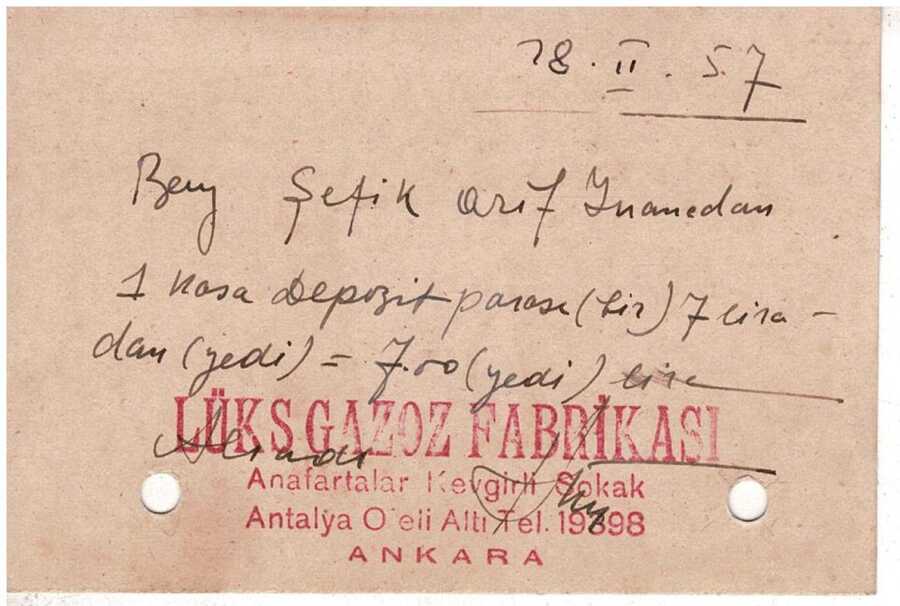 28.II.57
Bay Şefik Arif İnanedan
1 kasa depozit parası (bir) 7 lira-
dan (yedi) = 7.00 (yedi) lira
LÜKS GAZOZ FABRİKASI
Alındı
Anafartalar Kevgirli Sokak
Antalya Oteli Altı Tel. 19898
ANKARA